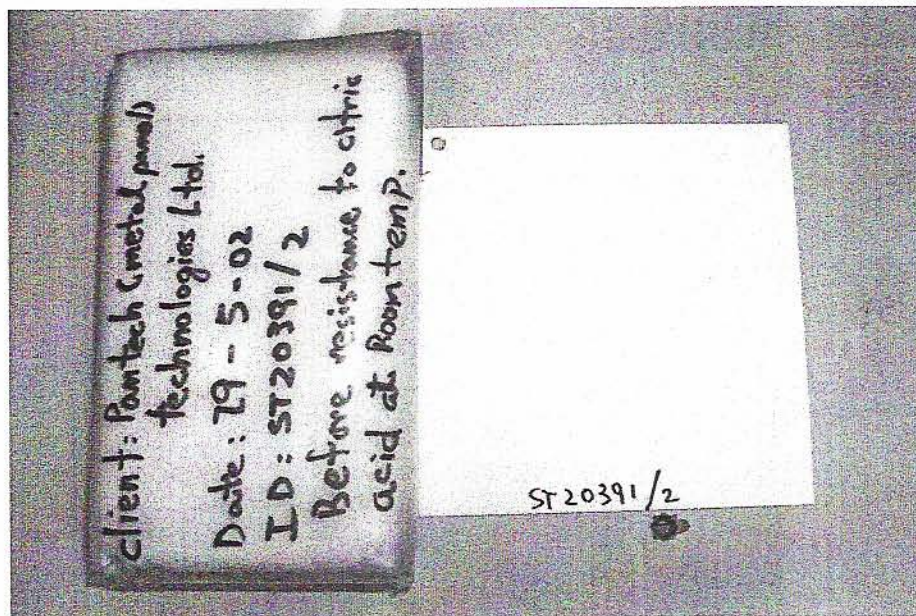 client: Pantech (metal panel)
technologies Ltd.
Date: 29-5-02
ID: ST20391/2
Before resistance to citric
acid at Room temp.
ST20391/2